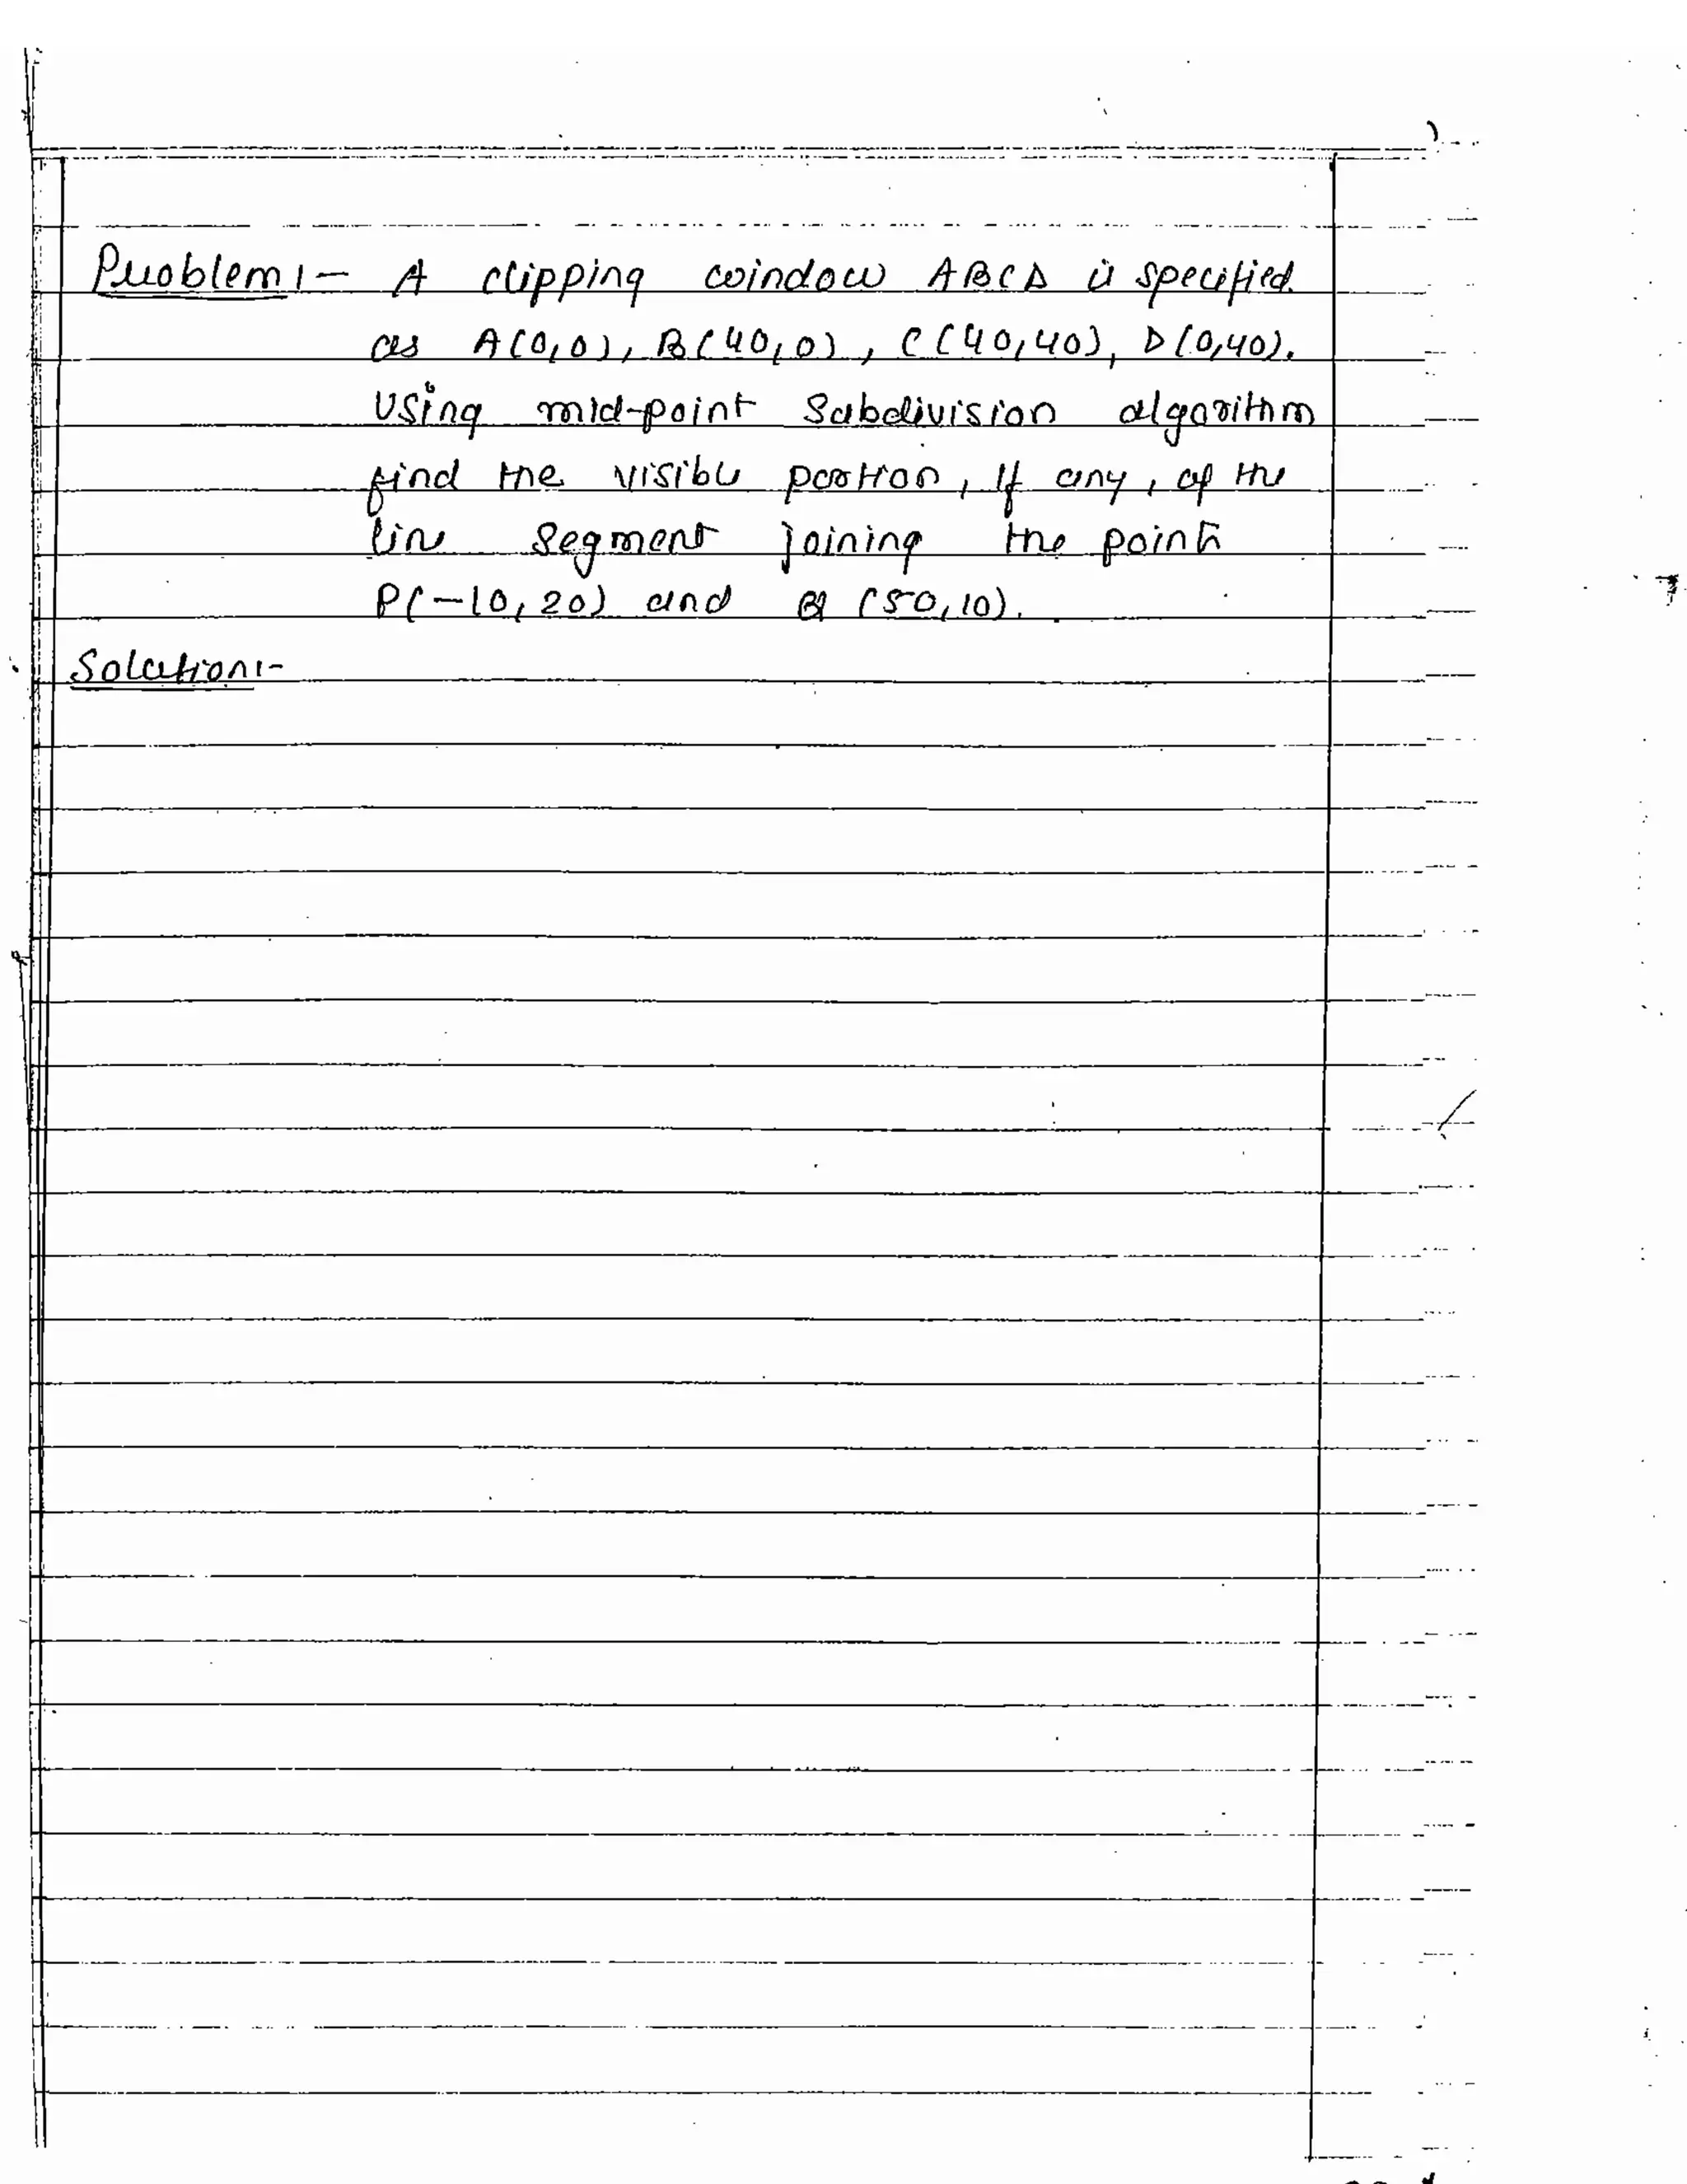 Problem :- A clipping window ABCD is specified
as A(0,0), B(40,0), C(40,40), D(0,40).
Using mid-point Subdivision algorithm
find the visible portion, If any, of the
line Segment joining the points
P(-10,20) and Q (50,10).
Solution:-